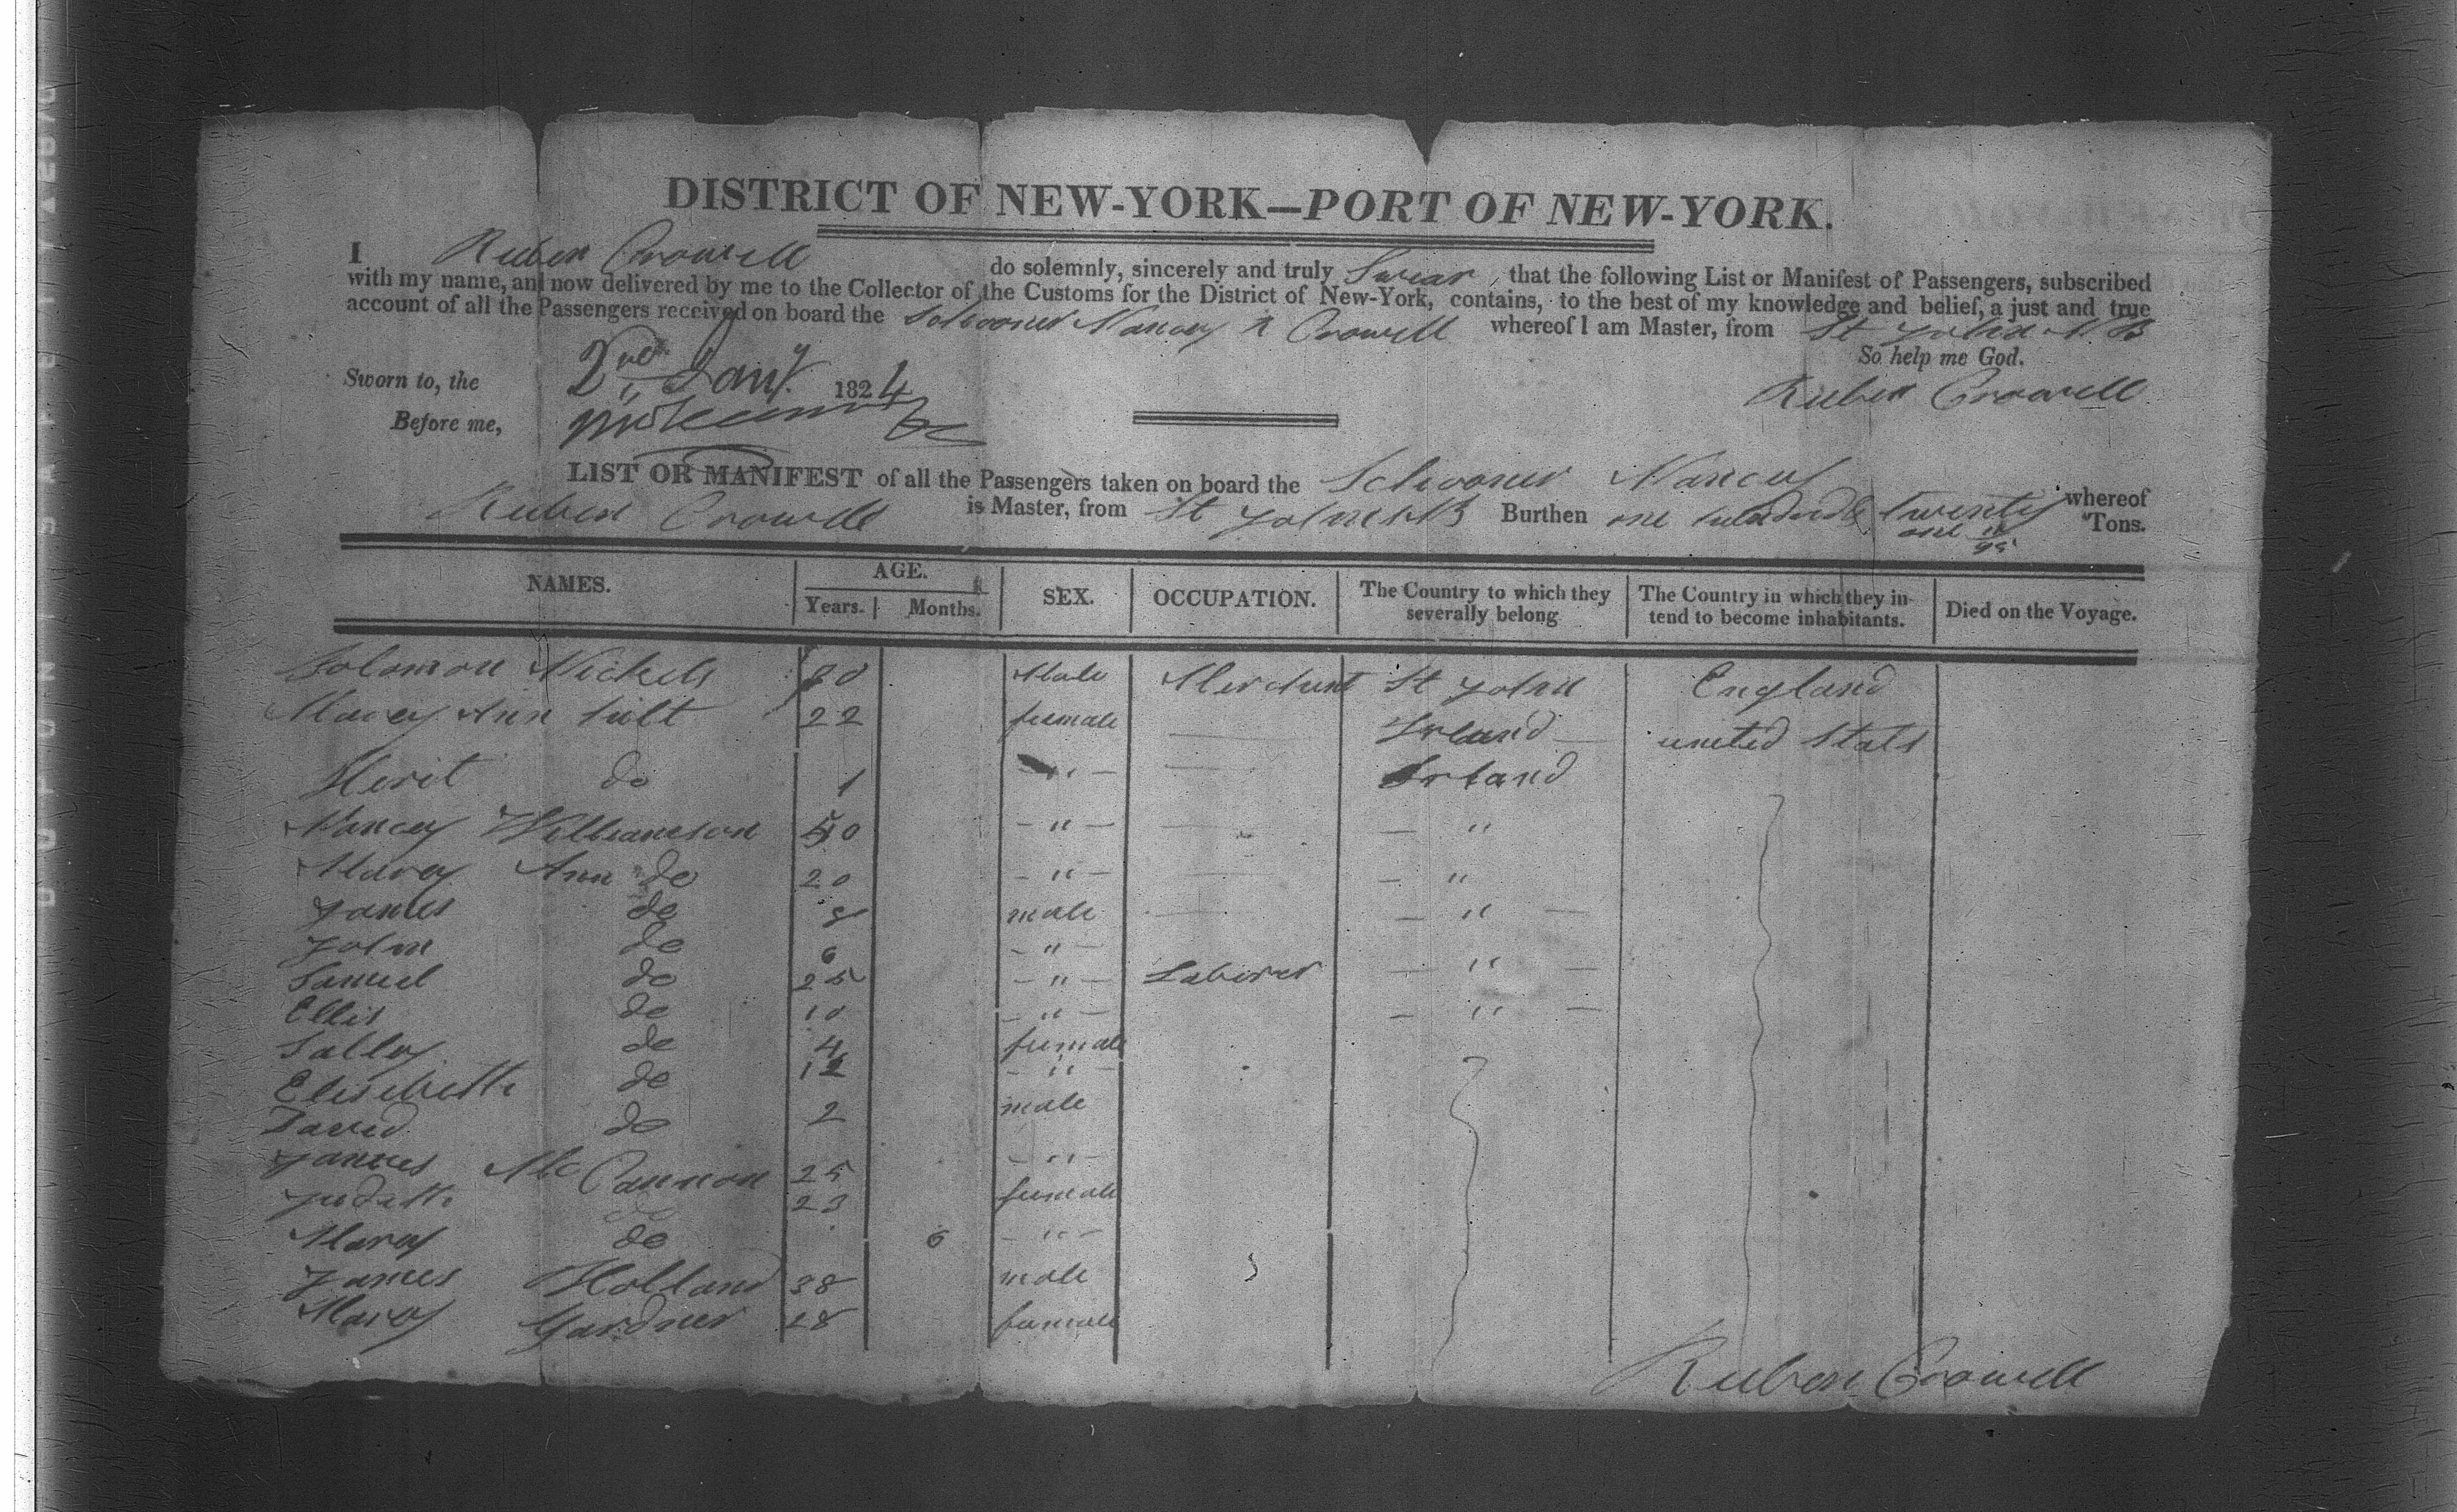 DISTRICT OF NEW-YORK—PORT OF NEW-YORK.
I Ruben Crowell do solemnly, sincerely and truly Swear, that the following List or Manifest of Passengers, subscribed
with my name, and now delivered by me to the Collector of the Customs for the District of New-York, contains, to the best of my knowledge and belief, a just and true
account of all the Passengers received on board the Schooner Nancy R Crowell whereof I am Master, from St John N.B
So help me God.
Sworn to, the 2nd Jany. 1824 Ruben Crowell
Before me,
LIST OR MANIFEST of all the Passengers taken on board the Schooner Nancy whereof
Ruben Crowell is Master, from St John N B Burthen one hundred twenty Tons.
one 95
NAMES. AGE. Years. Months. SEX. OCCUPATION. The Country to which they severally belong The Country in which they intend to become inhabitants. Died on the Voyage.
Solomon Nickels Male Merchant St John England
Marey Ann 22 female Irland united Stats
do 1 " Irland
Nancey Williamson " "
Marey Ann do 20 " "
James do 8 male "
John do 6 "
Samuel do 25 " Laborer "
Ellis do 10 " "
Salley do 4 female
Elisebeth do 12 "
David do 2 male
James McCannon 25 "
Judath do 23 female
Marey do 6 "
James Holland 38 male
Marey Gardner 28 female
Ruben Crowell